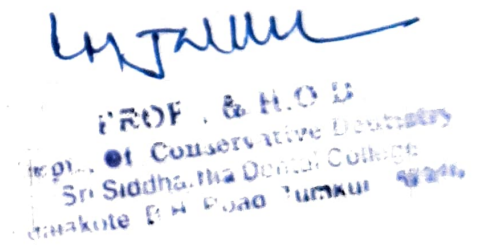 PROF. & H.O.D
Dept. of Conservative Dentistry
Sri Siddhartha Dental College
B.H. Road Tumkur